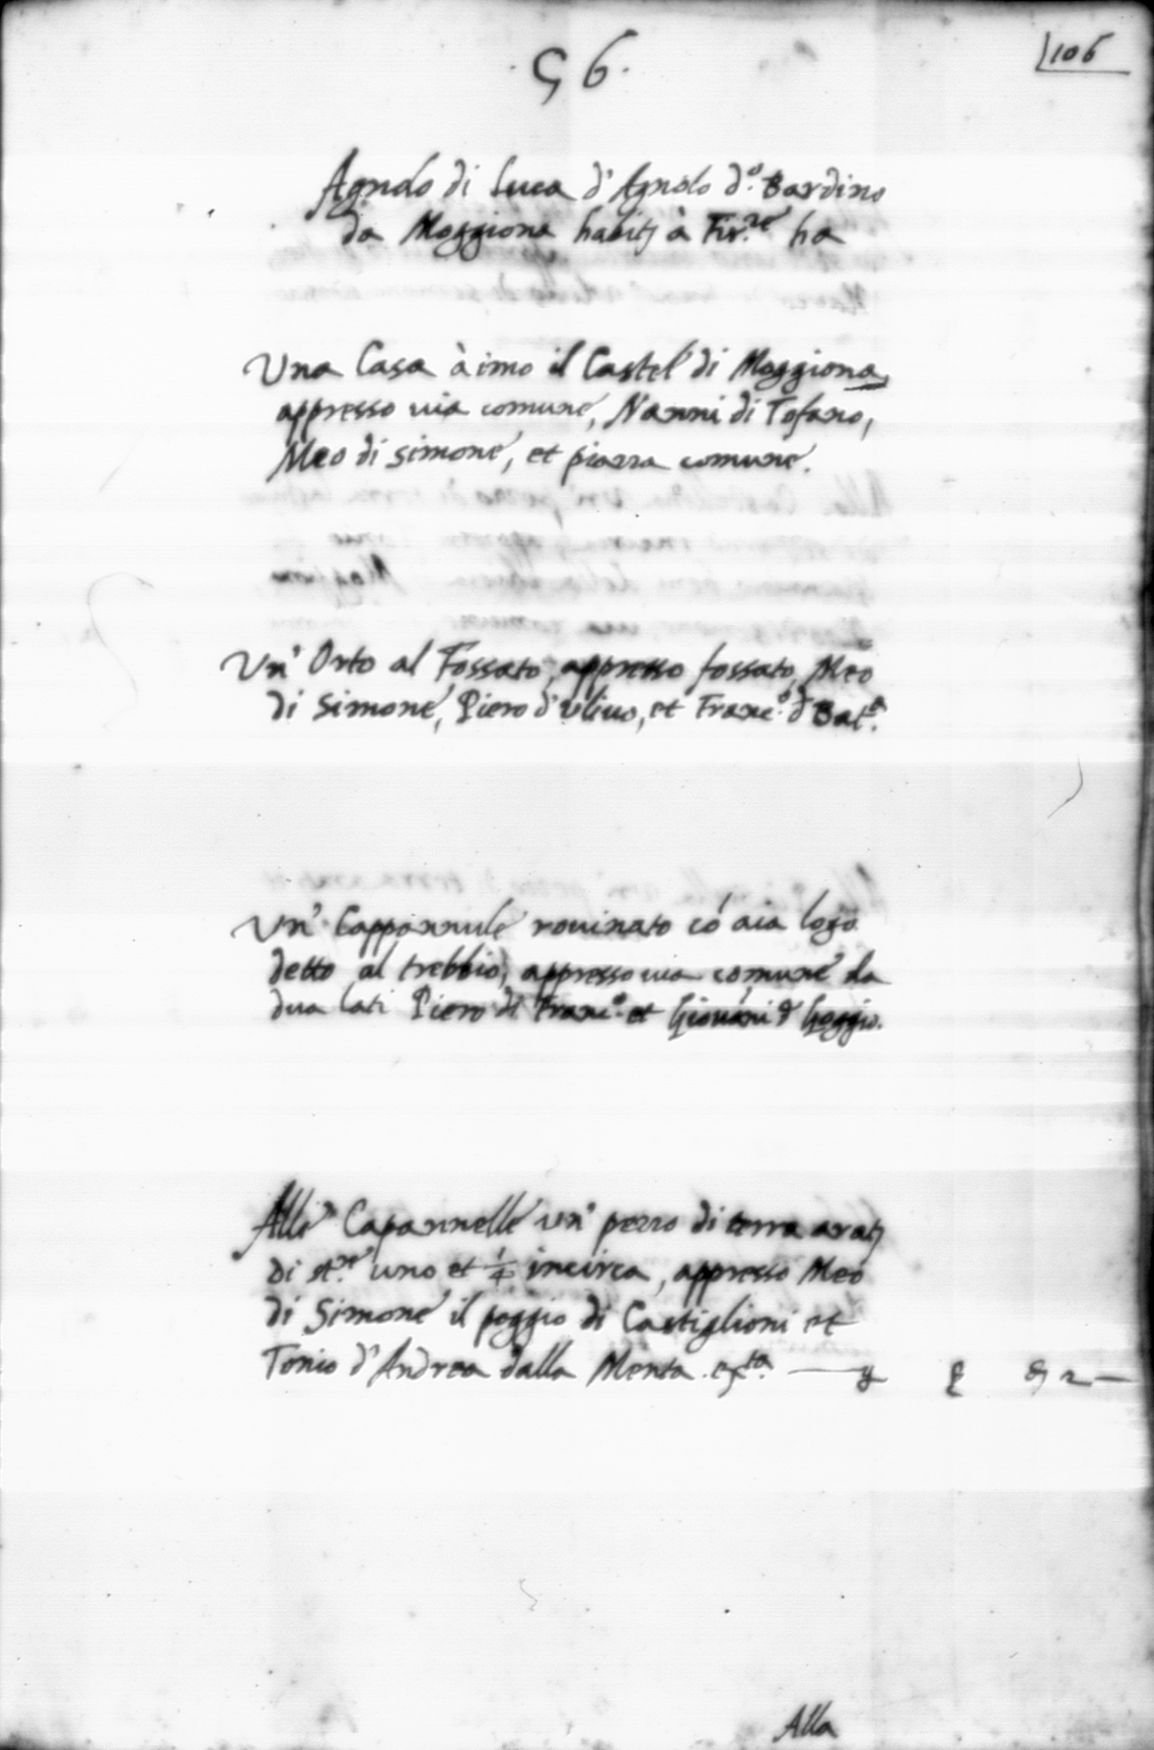 106
·56·
Agnolo di Luca d'Agnolo d.º Bardino
da Moggiona habitj à Fir.ze ha
Una Casa à imo il Castel di Moggiona,
appresso uia comune, Nanni di Tofano,
Meo di Simone, et piazza comune.
Un' Orto al Fossato, appresso fossato, Meo
di Simone, Piero d'Uliuo, et Franc.º d Bat.a
Un' Cappannile rouinato có aia logo
detto al trebbio, appresso uia comune da
dua lati Piero di Franc.º et Giouáni d Goggio.
Alle Capannelle un' pezzo di terra aratj
di st.re uno et 1/4 incirca, appresso Meo
di Simone il poggio di Castiglioni et
Tonio d'Andrea dalla Menta
Alla